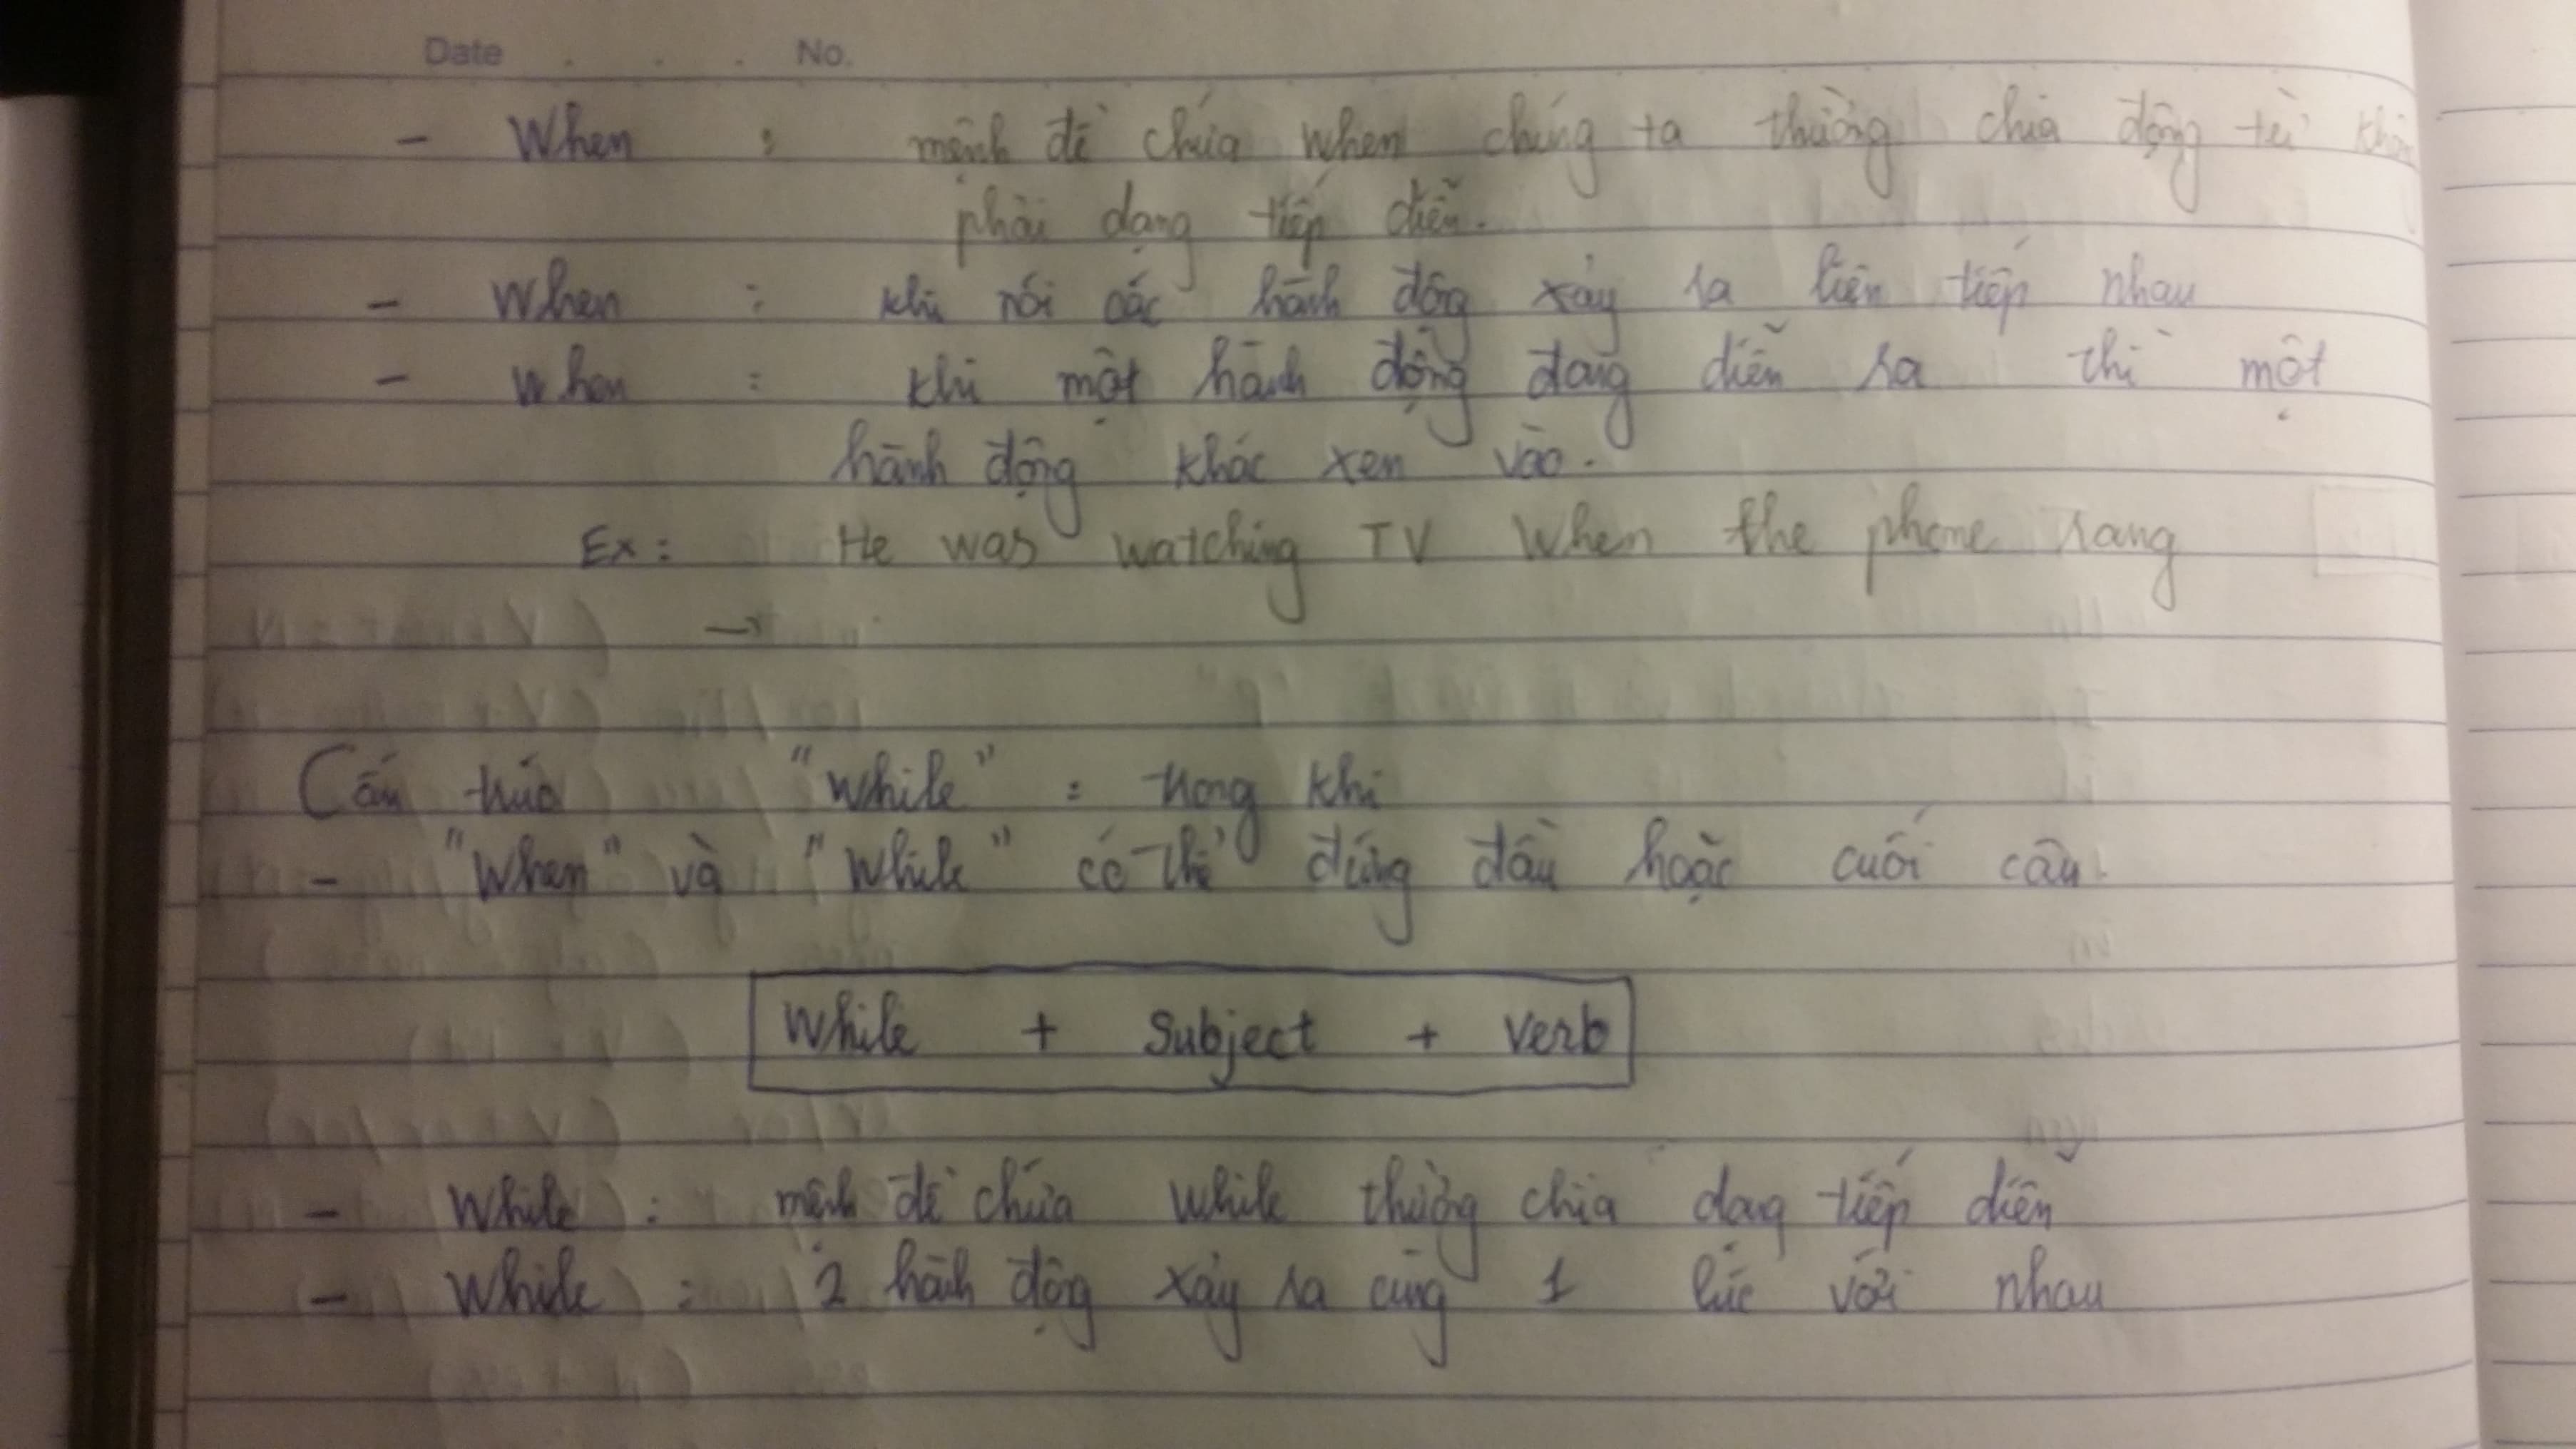 Date . . . No.
- When : mệnh đề chứa when chúng ta thường chia động từ không
phải dạng tiếp diễn.
- When : khi nói các hành động xảy ra liên tiếp nhau
- When : khi một hành động đang diễn ra thì một
hành động khác xen vào.
Ex : He was watching TV when the phone rang
→
Cấu trúc "while" : trong khi
- "When" và "while" có thể đứng đầu hoặc cuối câu.
While + Subject + Verb
- While : mệnh đề chứa while thường chia dạng tiếp diễn
- While : 2 hành động xảy ra cùng 1 lúc với nhau